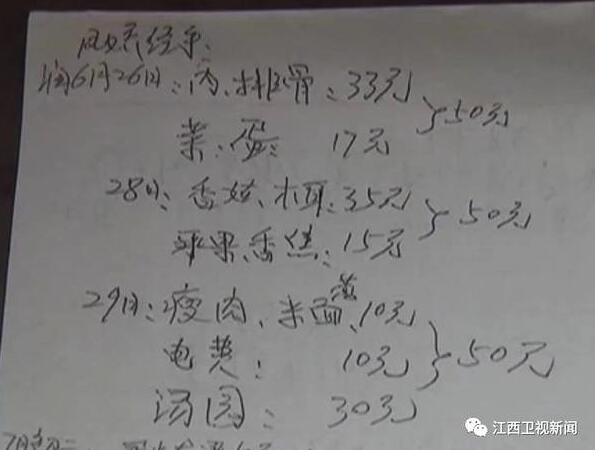 凤娇经手:
润6月26日:肉、排骨:33元 }50元
菜、蛋: 17元
28日:香菇、木耳:35元 }50元
苹果香蕉:15元
29日:瘦肉、米面、菜 10元
电费: 10元 }50元
汤圆: 30元
7月初二
江西卫视新闻